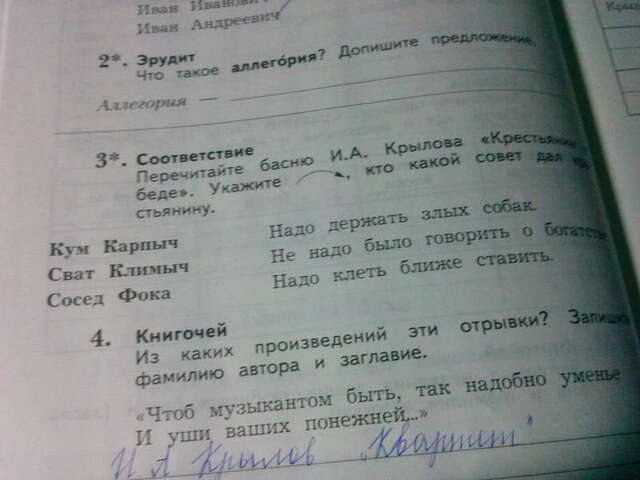 Иван Иванович
Иван Андреевич
2*. Эрудит
Что такое аллегория? Допишите предложение.
Аллегория —
3*. Соответствие
Перечитайте басню И.А. Крылова «Крестьянин
беде». Укажите , кто какой совет дал
стьянину.
Кум Карпыч
Надо держать злых собак.
Сват Климыч
Не надо было говорить о богатстве
Сосед Фока
Надо клеть ближе ставить.
4. Книгочей
Из каких произведений эти отрывки? Запиши
фамилию автора и заглавие.
«Чтоб музыкантом быть, так надобно уменье
И уши ваших понежней...»
И А Крылов „Квартет"